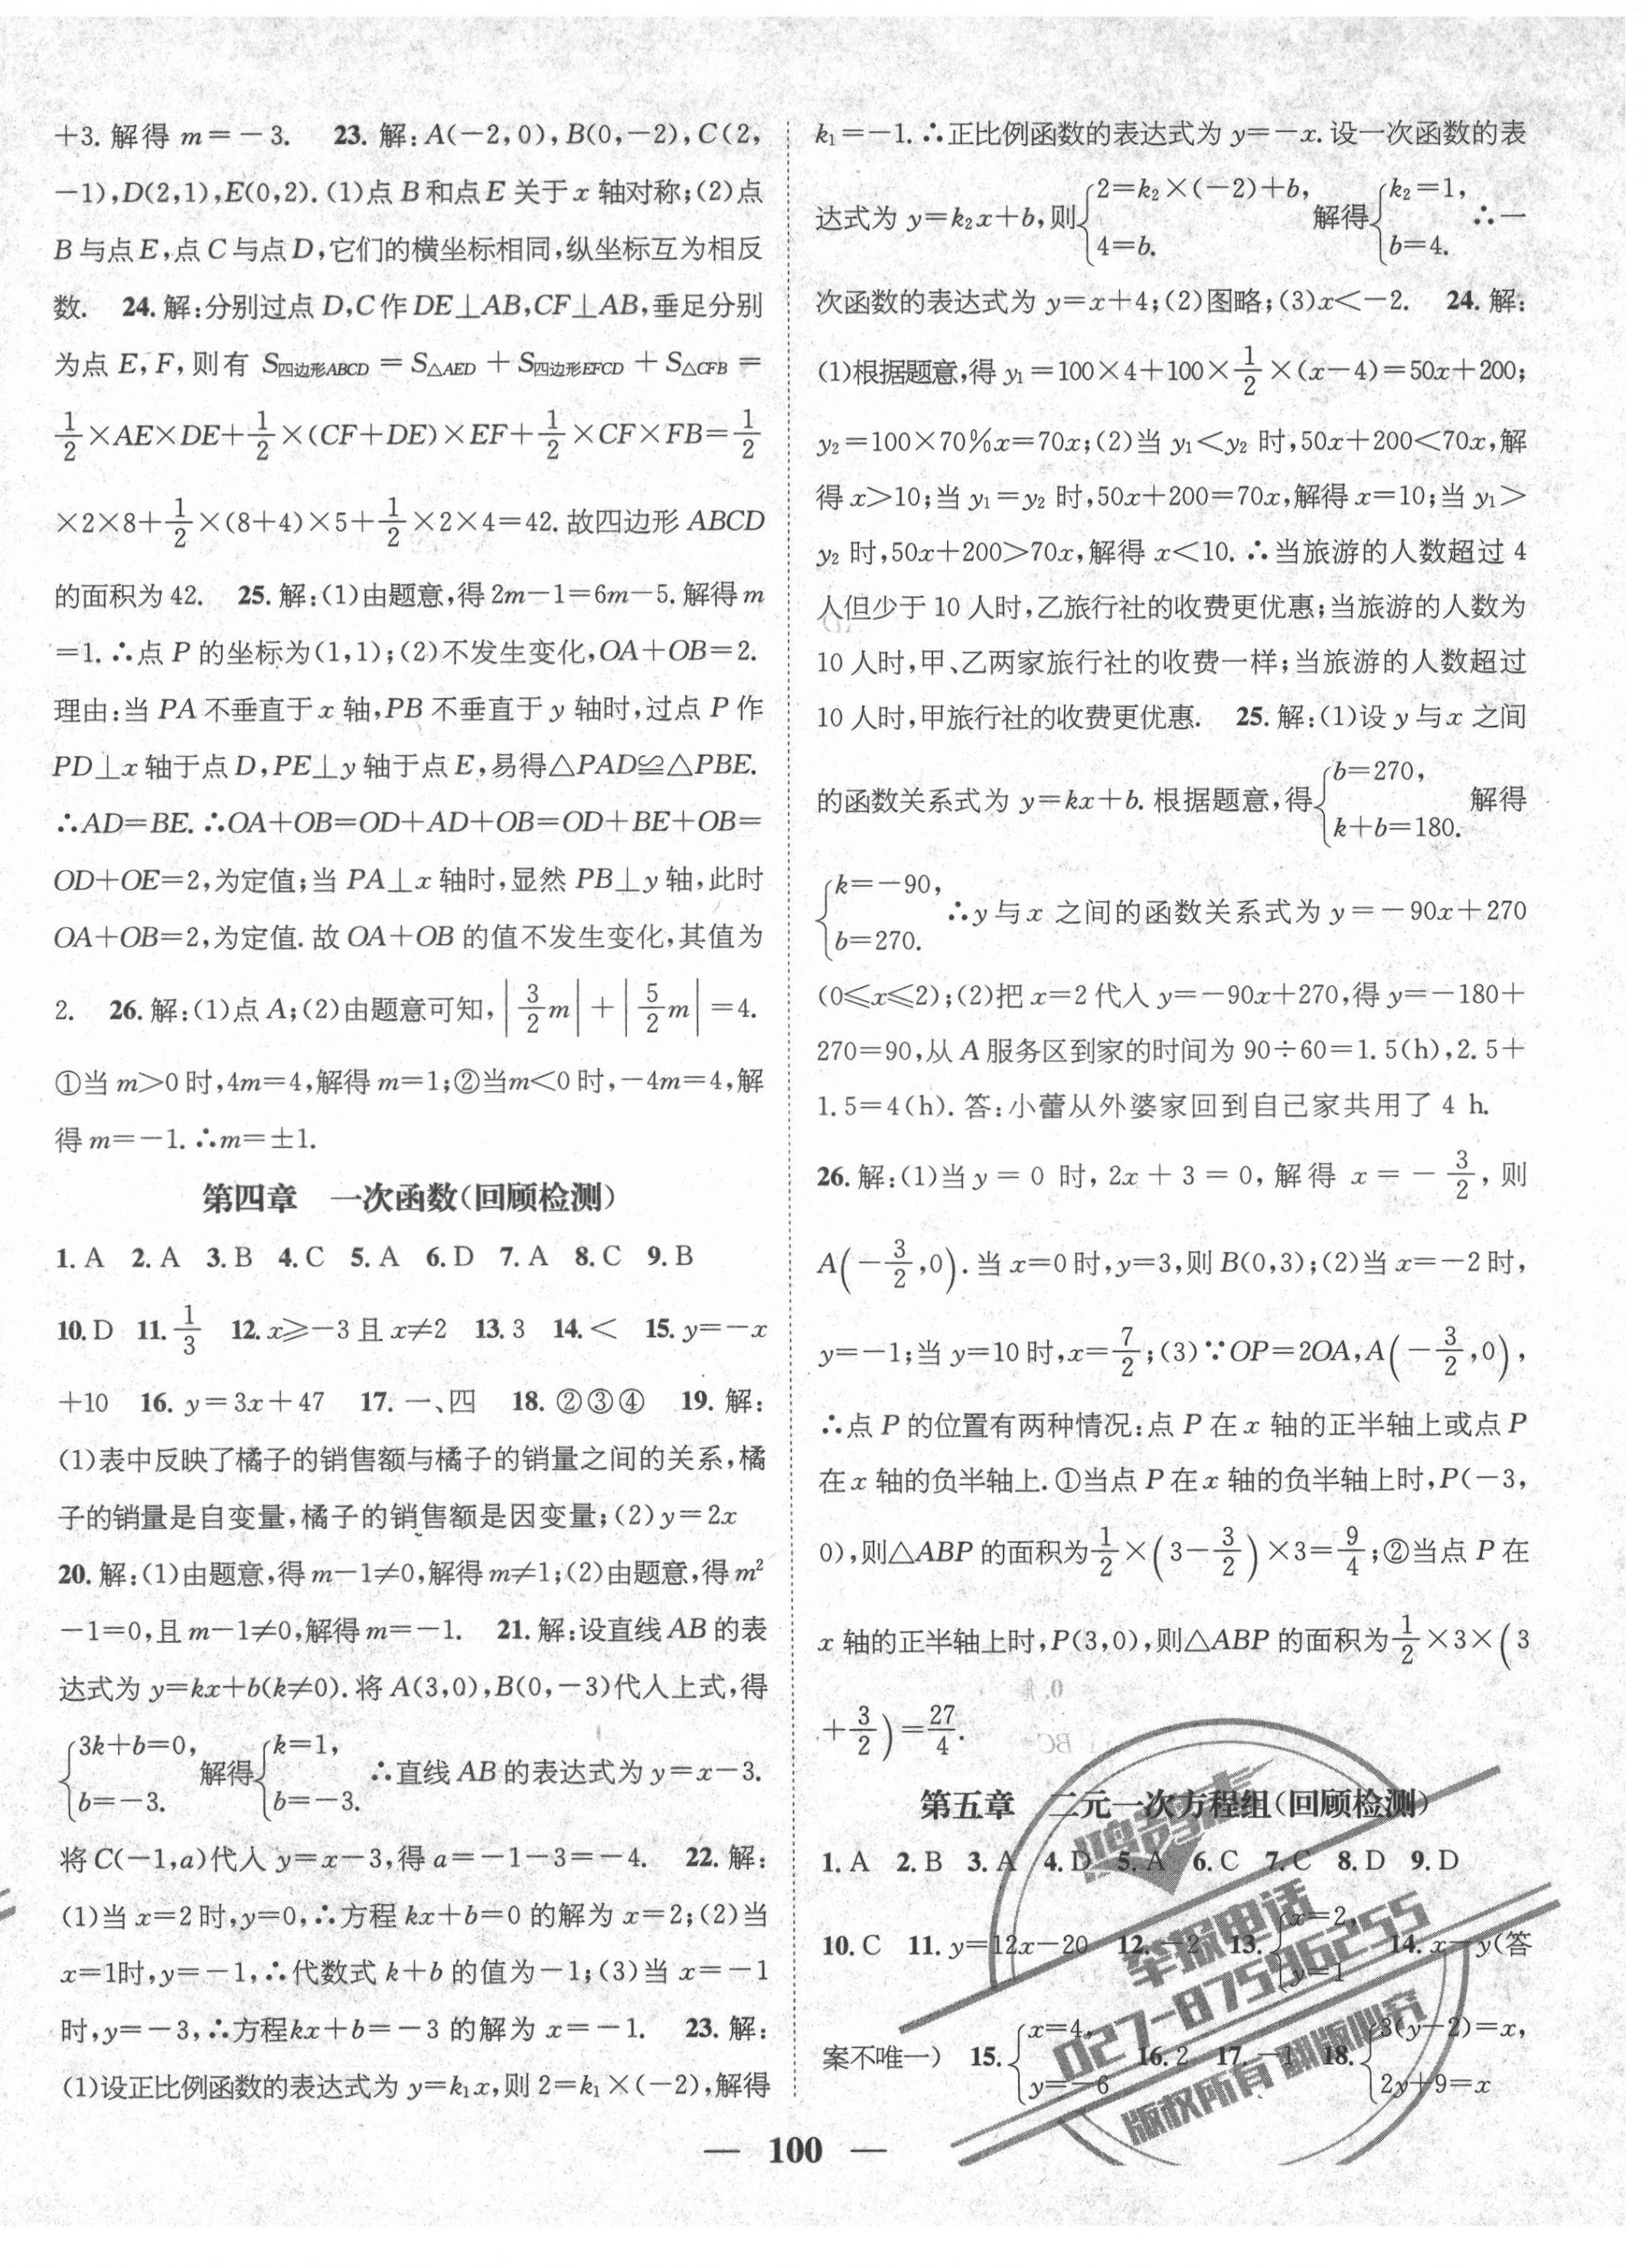 +3. 解得 m=-3.　23. 解:A(-2,0),B(0,-2),C(2,
-1),D(2,1),E(0,2). (1)点 B 和点 E 关于 x 轴对称;(2)点
B 与点 E,点 C 与点 D,它们的横坐标相同,纵坐标互为相反
数.　24. 解:分别过点 D,C 作 DE⊥AB,CF⊥AB,垂足分别
为点 E,F,则有 S四边形ABCD = S△AED + S四边形EFCD + S△CFB =
1/2×AE×DE+1/2×(CF+DE)×EF+1/2×CF×FB=1/2
×2×8+1/2×(8+4)×5+1/2×2×4=42. 故四边形 ABCD
的面积为 42.　25. 解:(1)由题意,得 2m-1=6m-5. 解得 m
=1. ∴点 P 的坐标为(1,1);(2)不发生变化,OA+OB=2.
理由:当 PA 不垂直于 x 轴,PB 不垂直于 y 轴时,过点 P 作
PD⊥x 轴于点 D,PE⊥y 轴于点 E,易得△PAD≌△PBE.
∴AD=BE. ∴OA+OB=OD+AD+OB=OD+BE+OB=
OD+OE=2,为定值;当 PA⊥x 轴时,显然 PB⊥y 轴,此时
OA+OB=2,为定值. 故 OA+OB 的值不发生变化,其值为
2.　26. 解:(1)点 A;(2)由题意可知,|3/2 m|+|5/2 m|=4.
①当 m>0 时,4m=4,解得 m=1;②当m<0 时,-4m=4,解
得 m=-1. ∴m=±1.
第四章　一次函数(回顾检测)
1. A　2. A　3. B　4. C　5. A　6. D　7. A　8. C　9. B
10. D　11. 1/3　12. x⩾-3 且 x≠2　13. 3　14. <　15. y=-x
+10　16. y=3x+47　17. 一、四　18. ②③④　19. 解:
(1)表中反映了橘子的销售额与橘子的销量之间的关系,橘
子的销量是自变量,橘子的销售额是因变量;(2)y=2x
20. 解:(1)由题意,得 m-1≠0,解得 m≠1;(2)由题意,得 m²
-1=0,且 m-1≠0,解得 m=-1.　21. 解:设直线 AB 的表
达式为 y=kx+b(k≠0). 将 A(3,0),B(0,-3)代入上式,得
{3k+b=0, b=-3. 解得{k=1, b=-3. ∴直线 AB 的表达式为 y=x-3.
将 C(-1,a)代入 y=x-3,得 a=-1-3=-4.　22. 解:
(1)当 x=2 时,y=0,∴方程 kx+b=0 的解为 x=2;(2)当
x=1时,y=-1,∴代数式 k+b 的值为-1;(3)当 x=-1
时,y=-3,∴方程kx+b=-3 的解为 x=-1.　23. 解:
(1)设正比例函数的表达式为 y=k₁x,则 2=k₁×(-2),解得
k₁=-1. ∴正比例函数的表达式为 y=-x. 设一次函数的表
达式为 y=k₂x+b,则{2=k₂×(-2)+b, 4=b. 解得{k₂=1, b=4. ∴一
次函数的表达式为 y=x+4;(2)图略;(3)x<-2.　24. 解:
(1)根据题意,得 y₁=100×4+100×1/2×(x-4)=50x+200;
y₂=100×70%x=70x;(2)当 y₁<y₂ 时,50x+200<70x,解
得 x>10;当 y₁=y₂ 时,50x+200=70x,解得 x=10;当 y₁>
y₂ 时,50x+200>70x,解得 x<10. ∴当旅游的人数超过 4
人但少于 10 人时,乙旅行社的收费更优惠;当旅游的人数为
10 人时,甲、乙两家旅行社的收费一样;当旅游的人数超过
10 人时,甲旅行社的收费更优惠.　25. 解:(1)设 y 与 x 之间
的函数关系式为 y=kx+b. 根据题意,得{b=270, k+b=180. 解得
{k=-90, b=270. ∴y 与 x 之间的函数关系式为 y=-90x+270
(0⩽x⩽2);(2)把 x=2 代入 y=-90x+270,得 y=-180+
270=90,从 A 服务区到家的时间为 90÷60=1.5(h),2.5+
1.5=4(h). 答:小蕾从外婆家回到自己家共用了 4 h.
26. 解:(1)当 y=0 时,2x+3=0,解得 x=-3/2,则
A(-3/2,0). 当 x=0 时,y=3,则 B(0,3);(2)当 x=-2 时,
y=-1;当 y=10 时,x=7/2;(3)∵OP=2OA,A(-3/2,0),
∴点 P 的位置有两种情况:点 P 在 x 轴的正半轴上或点 P
在 x 轴的负半轴上. ①当点 P 在 x 轴的负半轴上时,P(-3,
0),则△ABP 的面积为1/2×(3-3/2)×3=9/4;②当点 P 在
x 轴的正半轴上时,P(3,0),则△ABP 的面积为1/2×3×(3
+3/2)=27/4.
第五章　二元一次方程组(回顾检测)
1. A　2. B　3. A　4. D　5. A　6. C　7. C　8. D　9. D
10. C　11. y=12x-20　12. -2　13. {x=2, y=1　14. x-y(答
案不唯一)　15. {x=4, y=-6　16. 2　17. -1　18. {3(y-2)=x, 2y+9=x
举报电话
027-87596255
版权所有 翻版必究
— 100 —